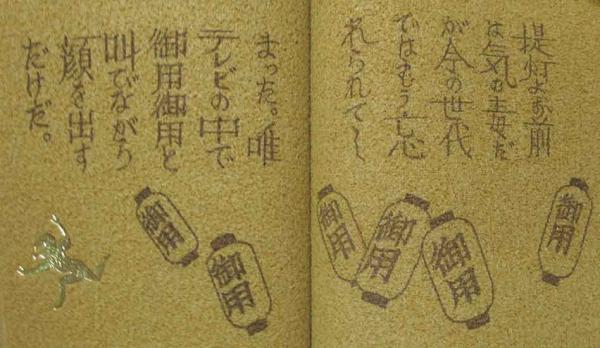 提灯よお前
は気の毒だ
が今の世代
ではもう忘
れられてし
御用
御用
御用
御用
まった。唯
テレビの中で
御用御用と
叫びながら
顔を出す
だけだ。
御用
御用